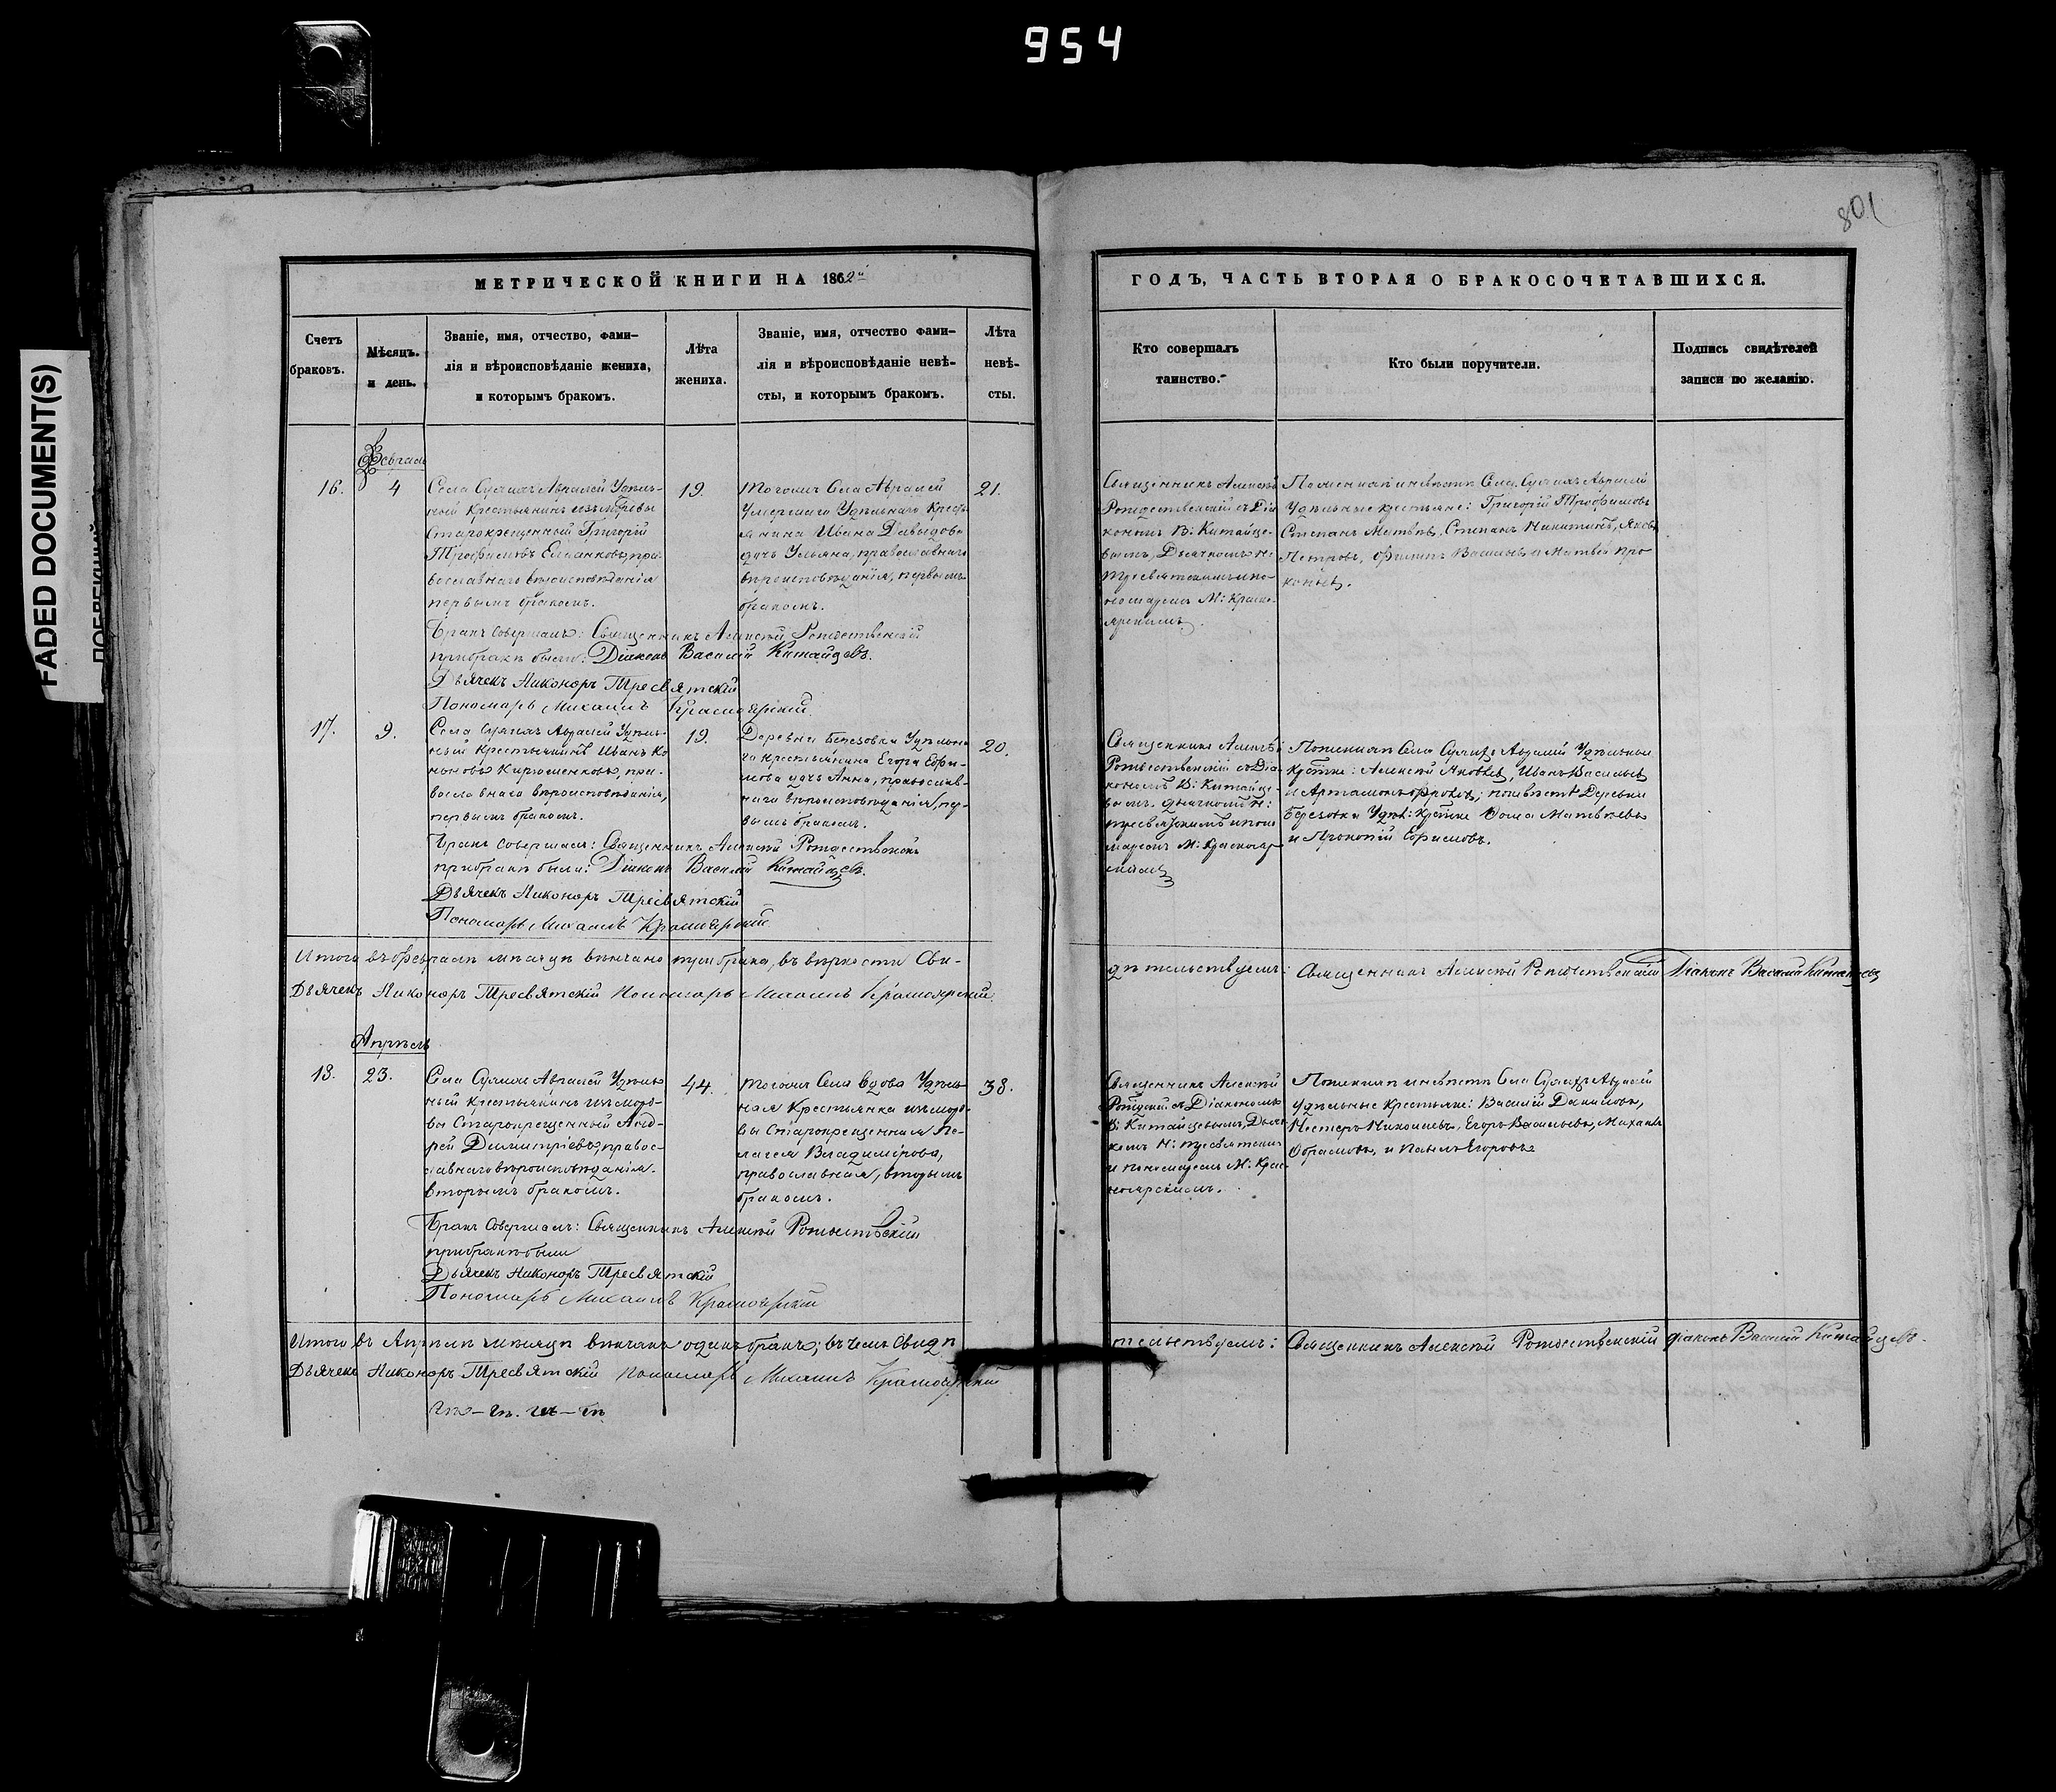 954
801
FADED DOCUMENT(S)
МЕТРИЧЕСКОЙ КНИГИ НА 1862й
ГОДЪ, ЧАСТЬ ВТОРАЯ О БРАКОСОЧЕТАВШИХСЯ.
Счетъ
браковъ.
Мѣсяцъ.
и день.
Званіе, имя, отчество, фами-
лія и вѣроисповѣданіе жениха,
и которымъ бракомъ.
Лѣта
жениха.
Званіе, имя, отчество фами-
лія и вѣроисповѣданіе невѣ-
сты, и которымъ бракомъ.
Лѣта
невѣ-
сты.
Кто совершалъ
таинство.
Кто были поручители.
Подпись свидѣтелей
записи по желанію.
Февраль
16.
4
Села Авралей Удѣль-
ный Крестьянинъ изъ
Старокрещенный Григорій
Трофимовъ пра-
вославнаго вѣроисповѣданія
первымъ бракомъ.
19.
Тогожъ Села Авралей
Умершаго Удѣльнаго Кресть
янина Ивана Давыдова
дочь Ульяна, православнаго
вѣроисповѣданія, первымъ
бракомъ.
21.
Священникъ Алексѣй
Рождественскій съ Діа
кономъ В: Китайце-
вымъ, Дьячкомъ Н:
Тресвятскимъ и по-
номаремъ М: Красно-
ярскимъ.
По женихѣ и невѣстѣ Села Авралей
Удѣльные крестьяне: Григорій Трофимовъ
Степанъ Матвѣевъ, Степанъ Никитинъ, Яковъ
Петровъ, Филипъ Васильевъ и Матвей Про-
кофьевъ.
Бракъ Совершалъ: Священникъ Алексѣй Рождественскій
при бракѣ были: Діаконъ Василій Китайцевъ.
Дьячекъ Никоноръ Тресвятскій
Пономарь Михаилъ Красноярскій.
17.
9.
Села Авралей Удѣль-
ный Крестьянинъ Иванъ Ко
ноновъ Кирюшенковъ, пра-
вославнаго вѣроисповѣданія,
первымъ бракомъ.
19.
Деревни Березовки Удѣльна
го крестьянина Егора Ефи-
мова дочь Анна, православ-
наго вѣроисповѣданія, пер-
вымъ бракомъ.
20.
Священникъ Алексѣй
Рождественскій съ Діа-
кономъ В: Китайце-
вымъ. дьячкомъ Н:
Тресвятскимъ и поно
маремъ М: Краснояр-
скимъ
По женихѣ Села Авралей Удѣльные
Кр-тяне: Алексѣй Яковлевъ, Иванъ Васильевъ
и Артамонъ Фроловъ; по невѣстѣ Деревни
Березовки Удѣл: Кр-тяне Фома Матвѣевъ
и Прокопій Ефимовъ.
Бракъ Совершалъ: Священникъ Алексѣй Рождественскій
при бракѣ были: Діаконъ Василій Китайцевъ.
Дьячекъ Никоноръ Тресвятскій
Пономарь Михаилъ Красноярскій
Итого въ Февралѣ мѣсяцѣ вѣнчано три брака, въ вѣрности Сви-
дѣтельствуемъ: Священникъ Алексѣй Рождественскій Діаконъ Василій Китайцевъ
Дьячекъ Никоноръ Тресвятскій Пономарь Михаилъ Красноярскій
Апрѣль
18.
23.
Села Авралей Удѣль
ный Крестьянинъ изъ морд-
вы Старокрещенный Анд-
рей Димитріевъ, правос-
лавнаго вѣроисповѣданія.
вторымъ бракомъ.
44.
Тогожъ Села Вдова Удѣль
ная Крестьянка изъ морд-
вы Старокрещенная Пе-
лагея Владимірова,
православная, вторымъ
бракомъ.
38.
Священникъ Алексѣй
съ Діакономъ
В: Китайцевымъ, Дьяч
комъ Н: Тресвятскимъ
и пономаремъ М: Крас-
ноярскимъ.
По женихѣ и невѣстѣ Села Авралей
Удѣльные Крестьяне: Василій Даниловъ,
Нестеръ Николаевъ, Егоръ Васильевъ, Михаилъ
Абрамовъ, и Павелъ Егоровъ
Бракъ Совершалъ: Священникъ Алексѣй Рождественскій
при бракѣ были
Дьячекъ Никоноръ Тресвятскій
Пономарь Михаилъ Красноярскій
Итого въ Апрѣлѣ мѣсяцѣ вѣнчанъ одинъ бракъ; въ чемъ Свидѣ
тельствуемъ: Священникъ Алексѣй Рождественскій діаконъ Василій Китайцевъ.
Дьячекъ Никоноръ Тресвятскій Пономарь Михаилъ Красноярскій